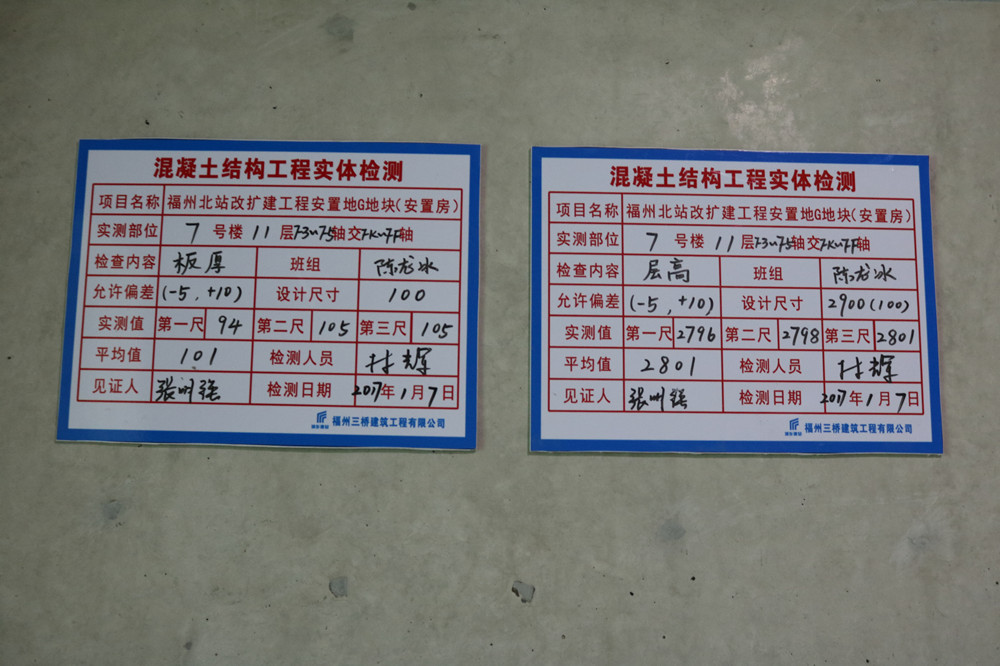 混凝土结构工程实体检测
项目名称 福州北站改扩建工程安置地G地块(安置房)
实测部位 7 号楼 11 层7-3~7-5轴交7-K~7-F轴
检查内容 板厚 班组 陈龙冰
允许偏差 (-5,+10) 设计尺寸 100
实测值 第一尺 94 第二尺 105 第三尺 105
平均值 101 检测人员 付辉
见证人 张明强 检测日期 2017年1月7日
福州三桥建筑工程有限公司
混凝土结构工程实体检测
项目名称 福州北站改扩建工程安置地G地块(安置房)
实测部位 7 号楼 11 层7-3~7-5轴交7-K~7-F轴
检查内容 层高 班组 陈龙冰
允许偏差 (-5,+10) 设计尺寸 2900(100)
实测值 第一尺 2796 第二尺 2798 第三尺 2801
平均值 2801 检测人员 付辉
见证人 张明强 检测日期 2017年1月7日
福州三桥建筑工程有限公司